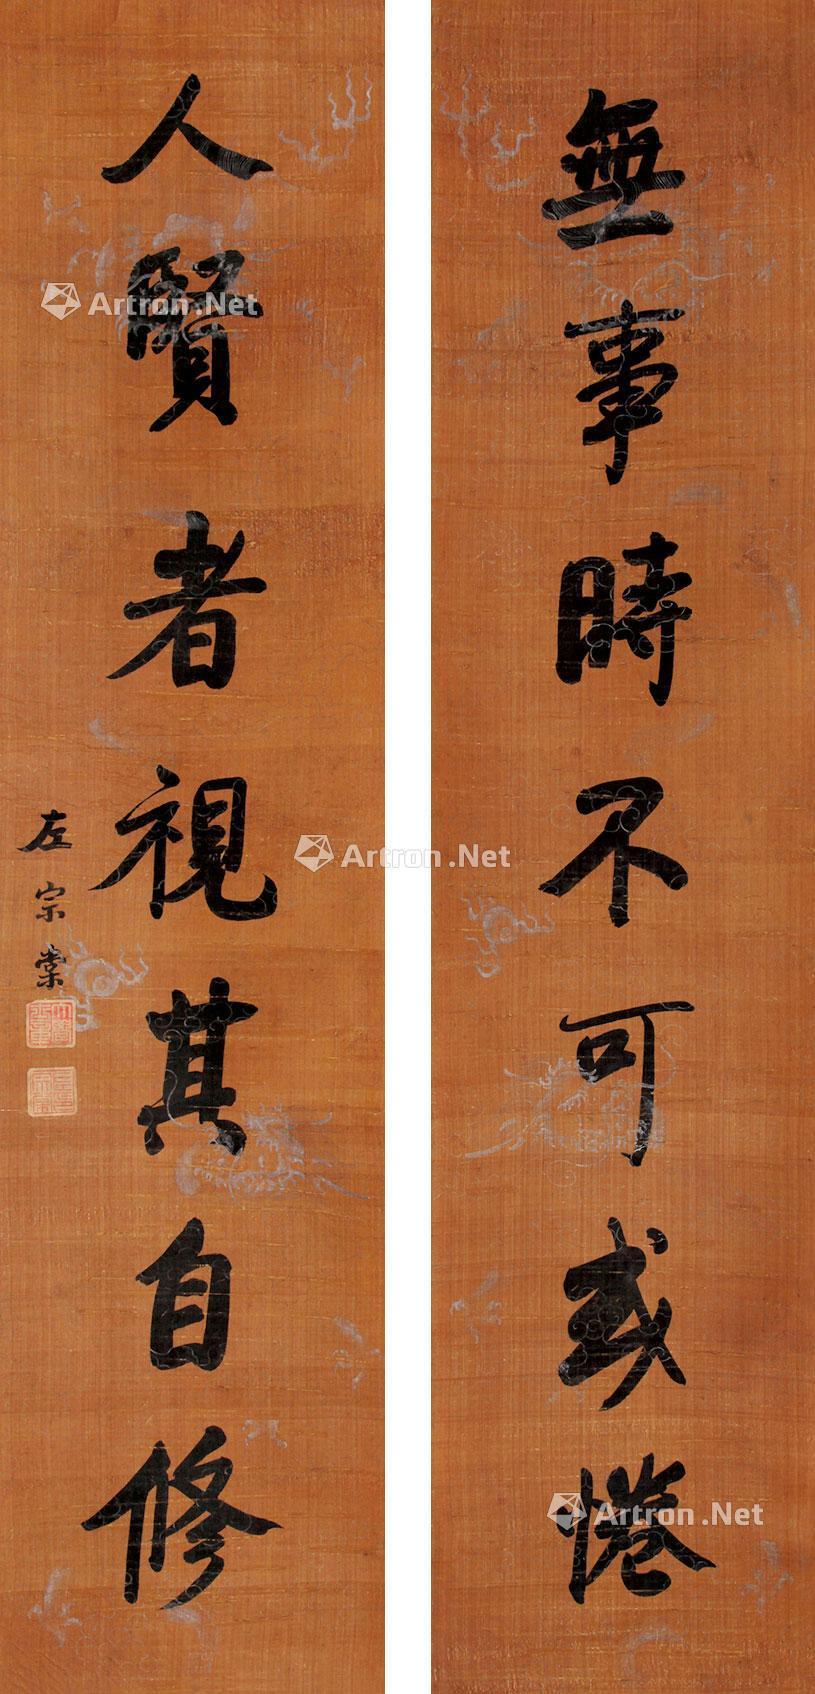 無事時不可或惓
人賢者視其自修
左宗棠
Artron.Net
Artron.Net
Artron.Net